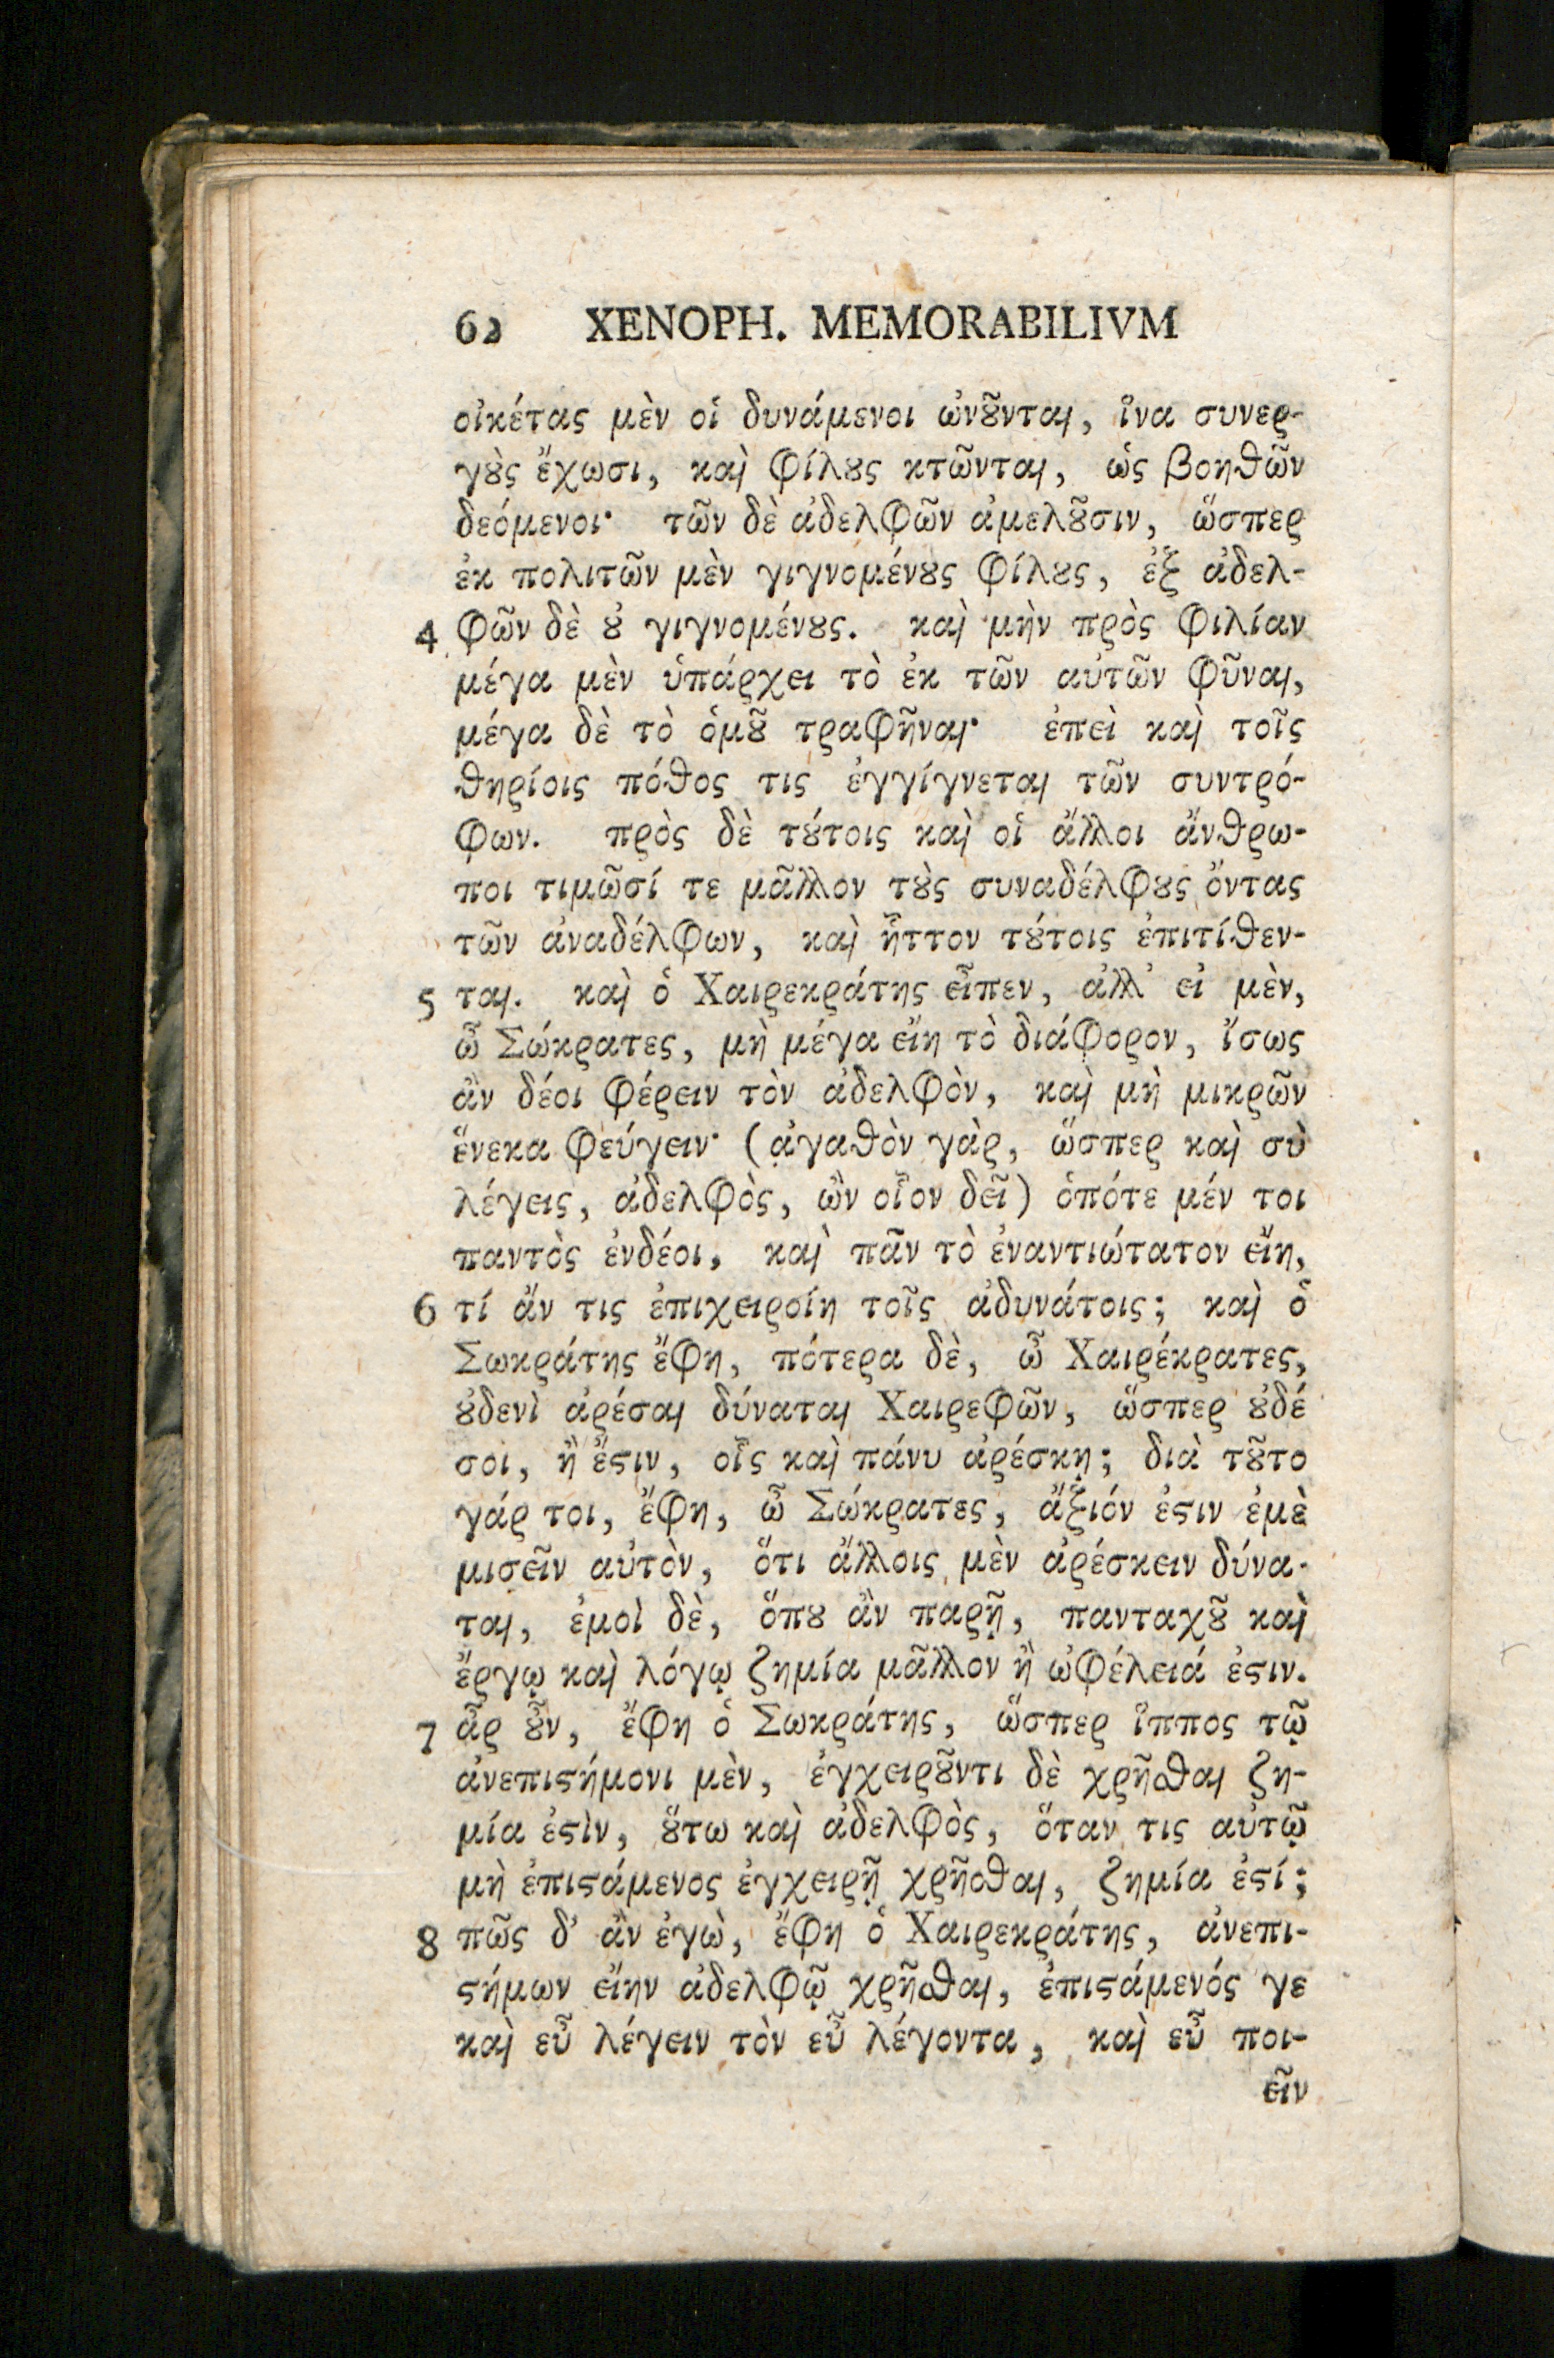 62 XENOPH. MEMORABILIVM
οἰκέτας μὲν οἱ δυνάμενοι ὠνȣ͂νται, ἵνα συνερ-
γȣ̀ς ἔχωσι, καὶ φίλȣς κτῶνται, ὡς βοηθῶν
δεόμενοι· τῶν δὲ ἀδελφῶν ἀμελȣ͂σιν, ὥσπερ
ἐκ πολιτῶν μὲν γιγνομένȣς φίλȣς, ἐξ ἀδελ-
4 φῶν δὲ ȣ̓ γιγνομένȣς. καὶ μὴν πρὸς φιλίαν
μέγα μὲν ὑπάρχει τὸ ἐκ τῶν αὐτῶν φῦναι,
μέγα δὲ τὸ ὁμȣ͂ τραφῆναι· ἐπεὶ καὶ τοῖς
θηρίοις πόθος τις ἐγγίγνεται τῶν συντρό-
φων. πρὸς δὲ τȣ́τοις καὶ οἱ ἄλλοι ἄνθρω-
ποι τιμῶσί τε μᾶλλον τȣ̀ς συναδέλφȣς ὄντας
τῶν ἀναδέλφων, καὶ ἧττον τȣ́τοις ἐπιτίθεν-
5 ται. καὶ ὁ Χαιρεκράτης εἶπεν, ἀλλ' εἰ μὲν,
ὦ Σώκρατες, μὴ μέγα εἴη τὸ διάφορον, ἴσως
ἂν δέοι φέρειν τὸν ἀδελφὸν, καὶ μὴ μικρῶν
ἕνεκα φεύγειν· (ἀγαθὸν γὰρ, ὥσπερ καὶ σὺ
λέγεις, ἀδελφὸς, ὢν οἷον δεῖ) ὁπότε μέν τοι
παντὸς ἐνδέοι, καὶ πᾶν τὸ ἐναντιώτατον εἴη,
6 τί ἄν τις ἐπιχειροίη τοῖς ἀδυνάτοις; καὶ ὁ
Σωκράτης ἔφη, πότερα δὲ, ὦ Χαιρέκρατες,
ȣ̓δενὶ ἀρέσαι δύναται Χαιρεφῶν, ὥσπερ ȣ̓δέ
σοι, ἢ ἔϛιν, οἷς καὶ πάνυ ἀρέσκῃ; διὰ τȣ͂το
γάρ τοι, ἔφη, ὦ Σώκρατες, ἄξιόν ἐϛιν ἐμὲ
μισεῖν αὐτὸν, ὅτι ἄλλοις μὲν ἀρέσκειν δύνα-
ται, ἐμοὶ δὲ, ὅπȣ ἂν παρῇ, πανταχȣ͂ καὶ
ἔργῳ καὶ λόγῳ ζημία μᾶλλον ἢ ὠφέλειά ἐϛιν.
7 ἆρ ȣ̓͂ν, ἔφη ὁ Σωκράτης, ὥσπερ ἵππος τῷ
ἀνεπιϛήμονι μὲν, ἐγχειρȣ͂ντι δὲ χρῆσθαι ζη-
μία ἐϛὶν, ȣ̔́τω καὶ ἀδελφὸς, ὅταν τις αὐτῷ
μὴ ἐπιϛάμενος ἐγχειρῇ χρῆσθαι, ζημία ἐϛί;
8 πῶς δ' ἂν ἐγὼ, ἔφη ὁ Χαιρεκράτης, ἀνεπι-
ϛήμων εἴην ἀδελφῷ χρῆσθαι, ἐπιϛάμενός γε
καὶ εὖ λέγειν τὸν εὖ λέγοντα, καὶ εὖ ποι-
εῖν